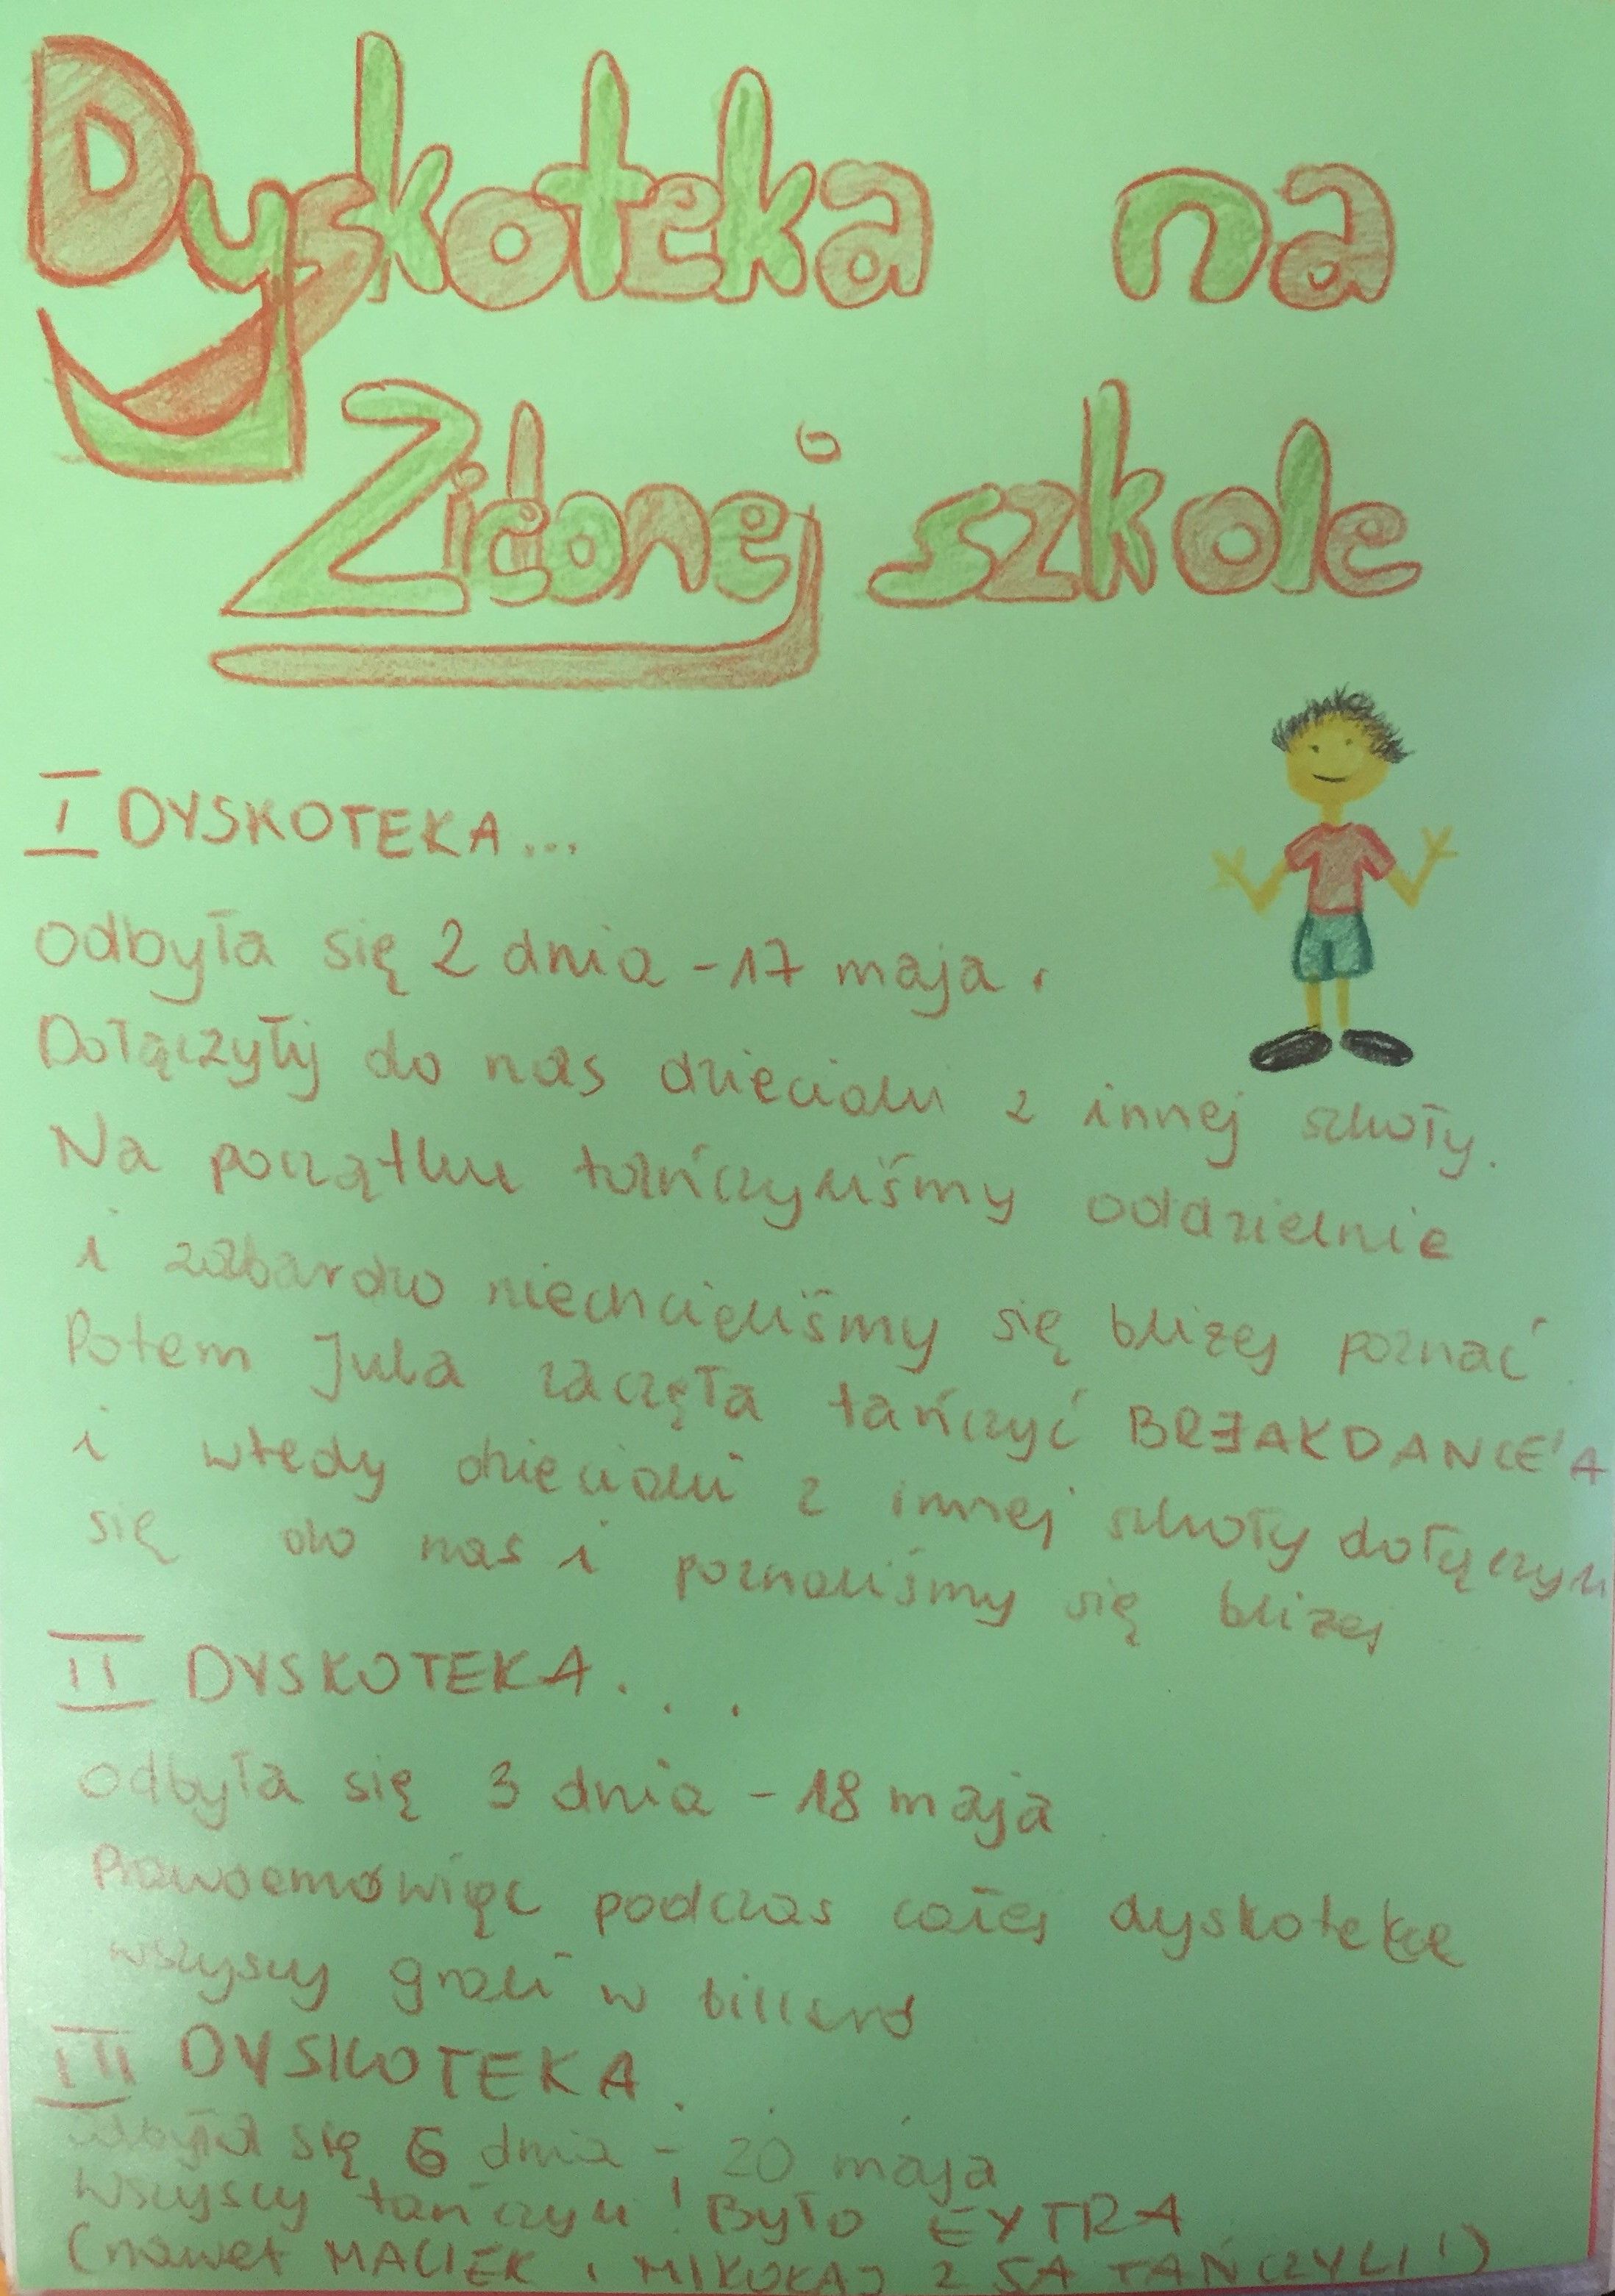 Dyskoteka na
Zielonej szkole
I DYSKOTEKA...
odbyła się 2 dnia - 17 maja.
Dołączyłyj do nas dzieciaki z innej szkoły.
Na początku tańczyliśmy oddzielnie
i zabardzo niechcieliśmy się bliżej poznać.
Potem Jula zaczęła tańczyć BREAKDANCE'A
i wtedy dzieciaki z innej szkoły dołączyli
się do nas i poznaliśmy się bliżej
II DYSKOTEKA...
odbyła się 3 dnia - 18 maja
Prawdemówięc podczas całej dyskotekce
wszyscy grali w billard
III DYSKOTEKA...
odbyła się 5 dnia - 20 maja
Wszyscy tańczyli! Było EXTRA
(nawet MACIEK i MIKOŁAJ z 5A TAŃCZYLI!)